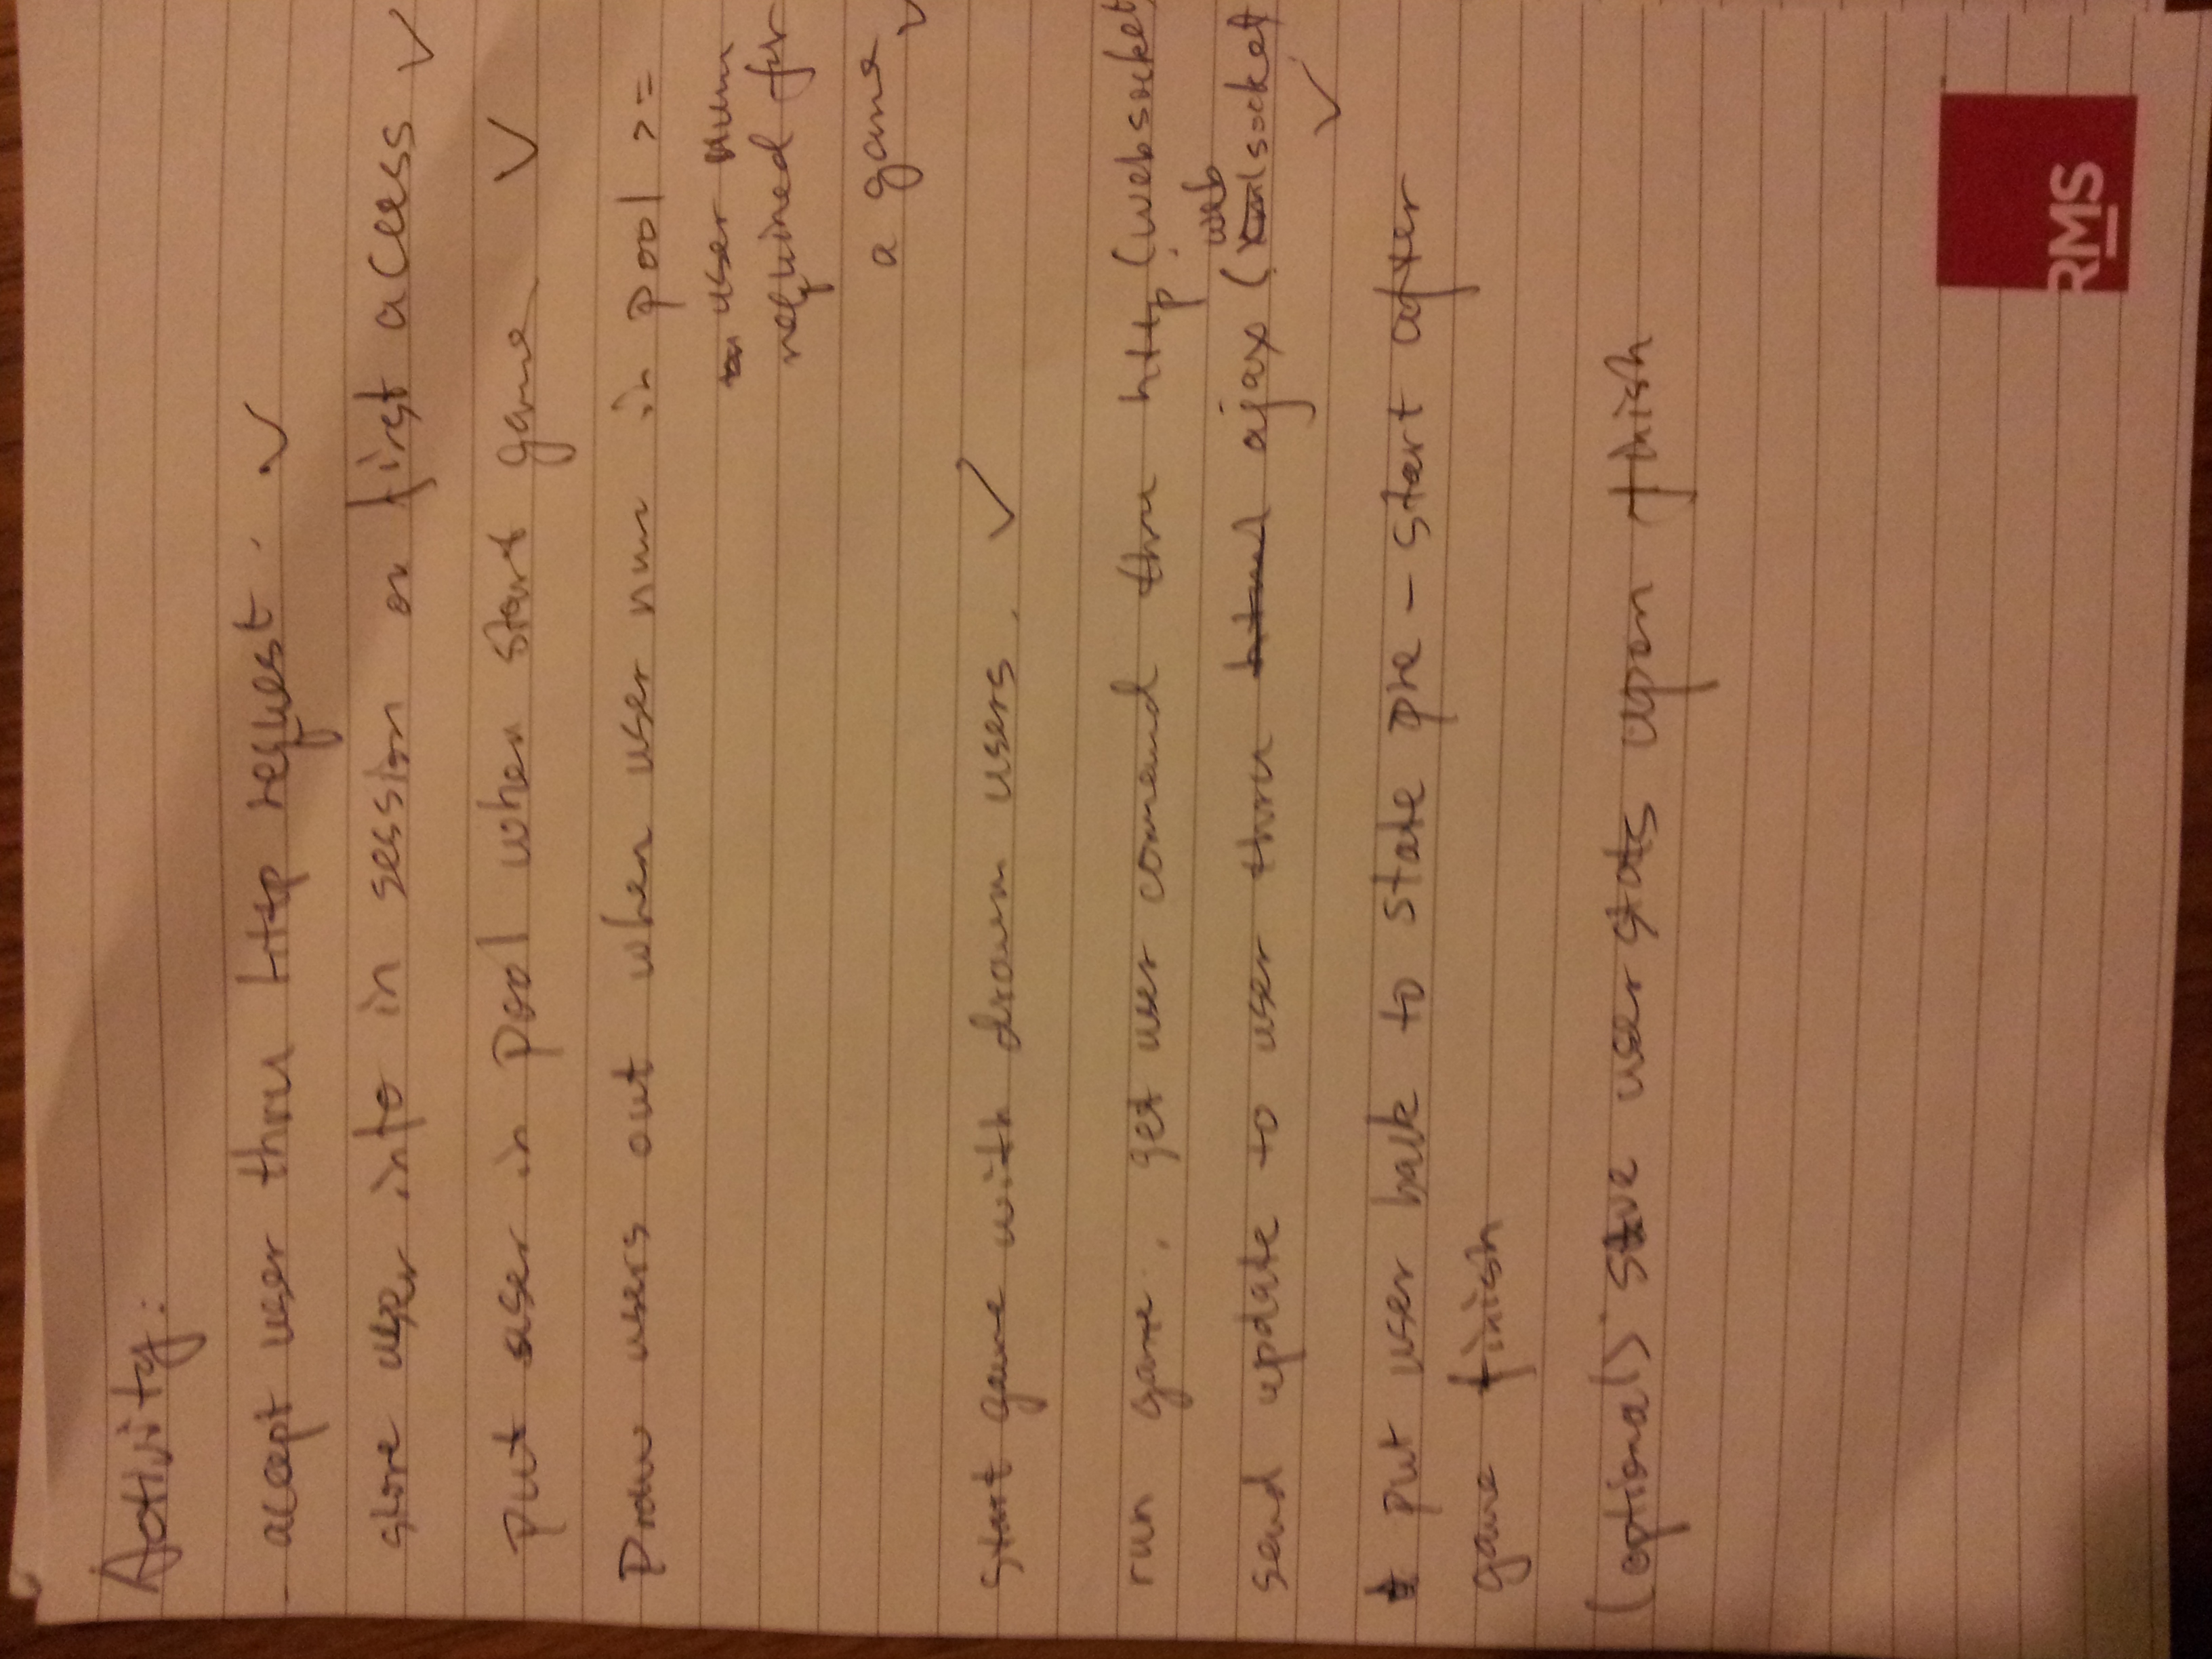 Activity:
- accept user thru http request. ✓
store user info in session on first access ✓
put user in pool when start game ✓
Draw users out when user num in pool >=
user num
required for
a game ✓
start game with drawn users. ✓
run game, get user command thru http (websocket
send update to user thru html ajax (web socket
✓
put user back to state pre-start after
game finish
(optional) store user stats upon finish
RMS